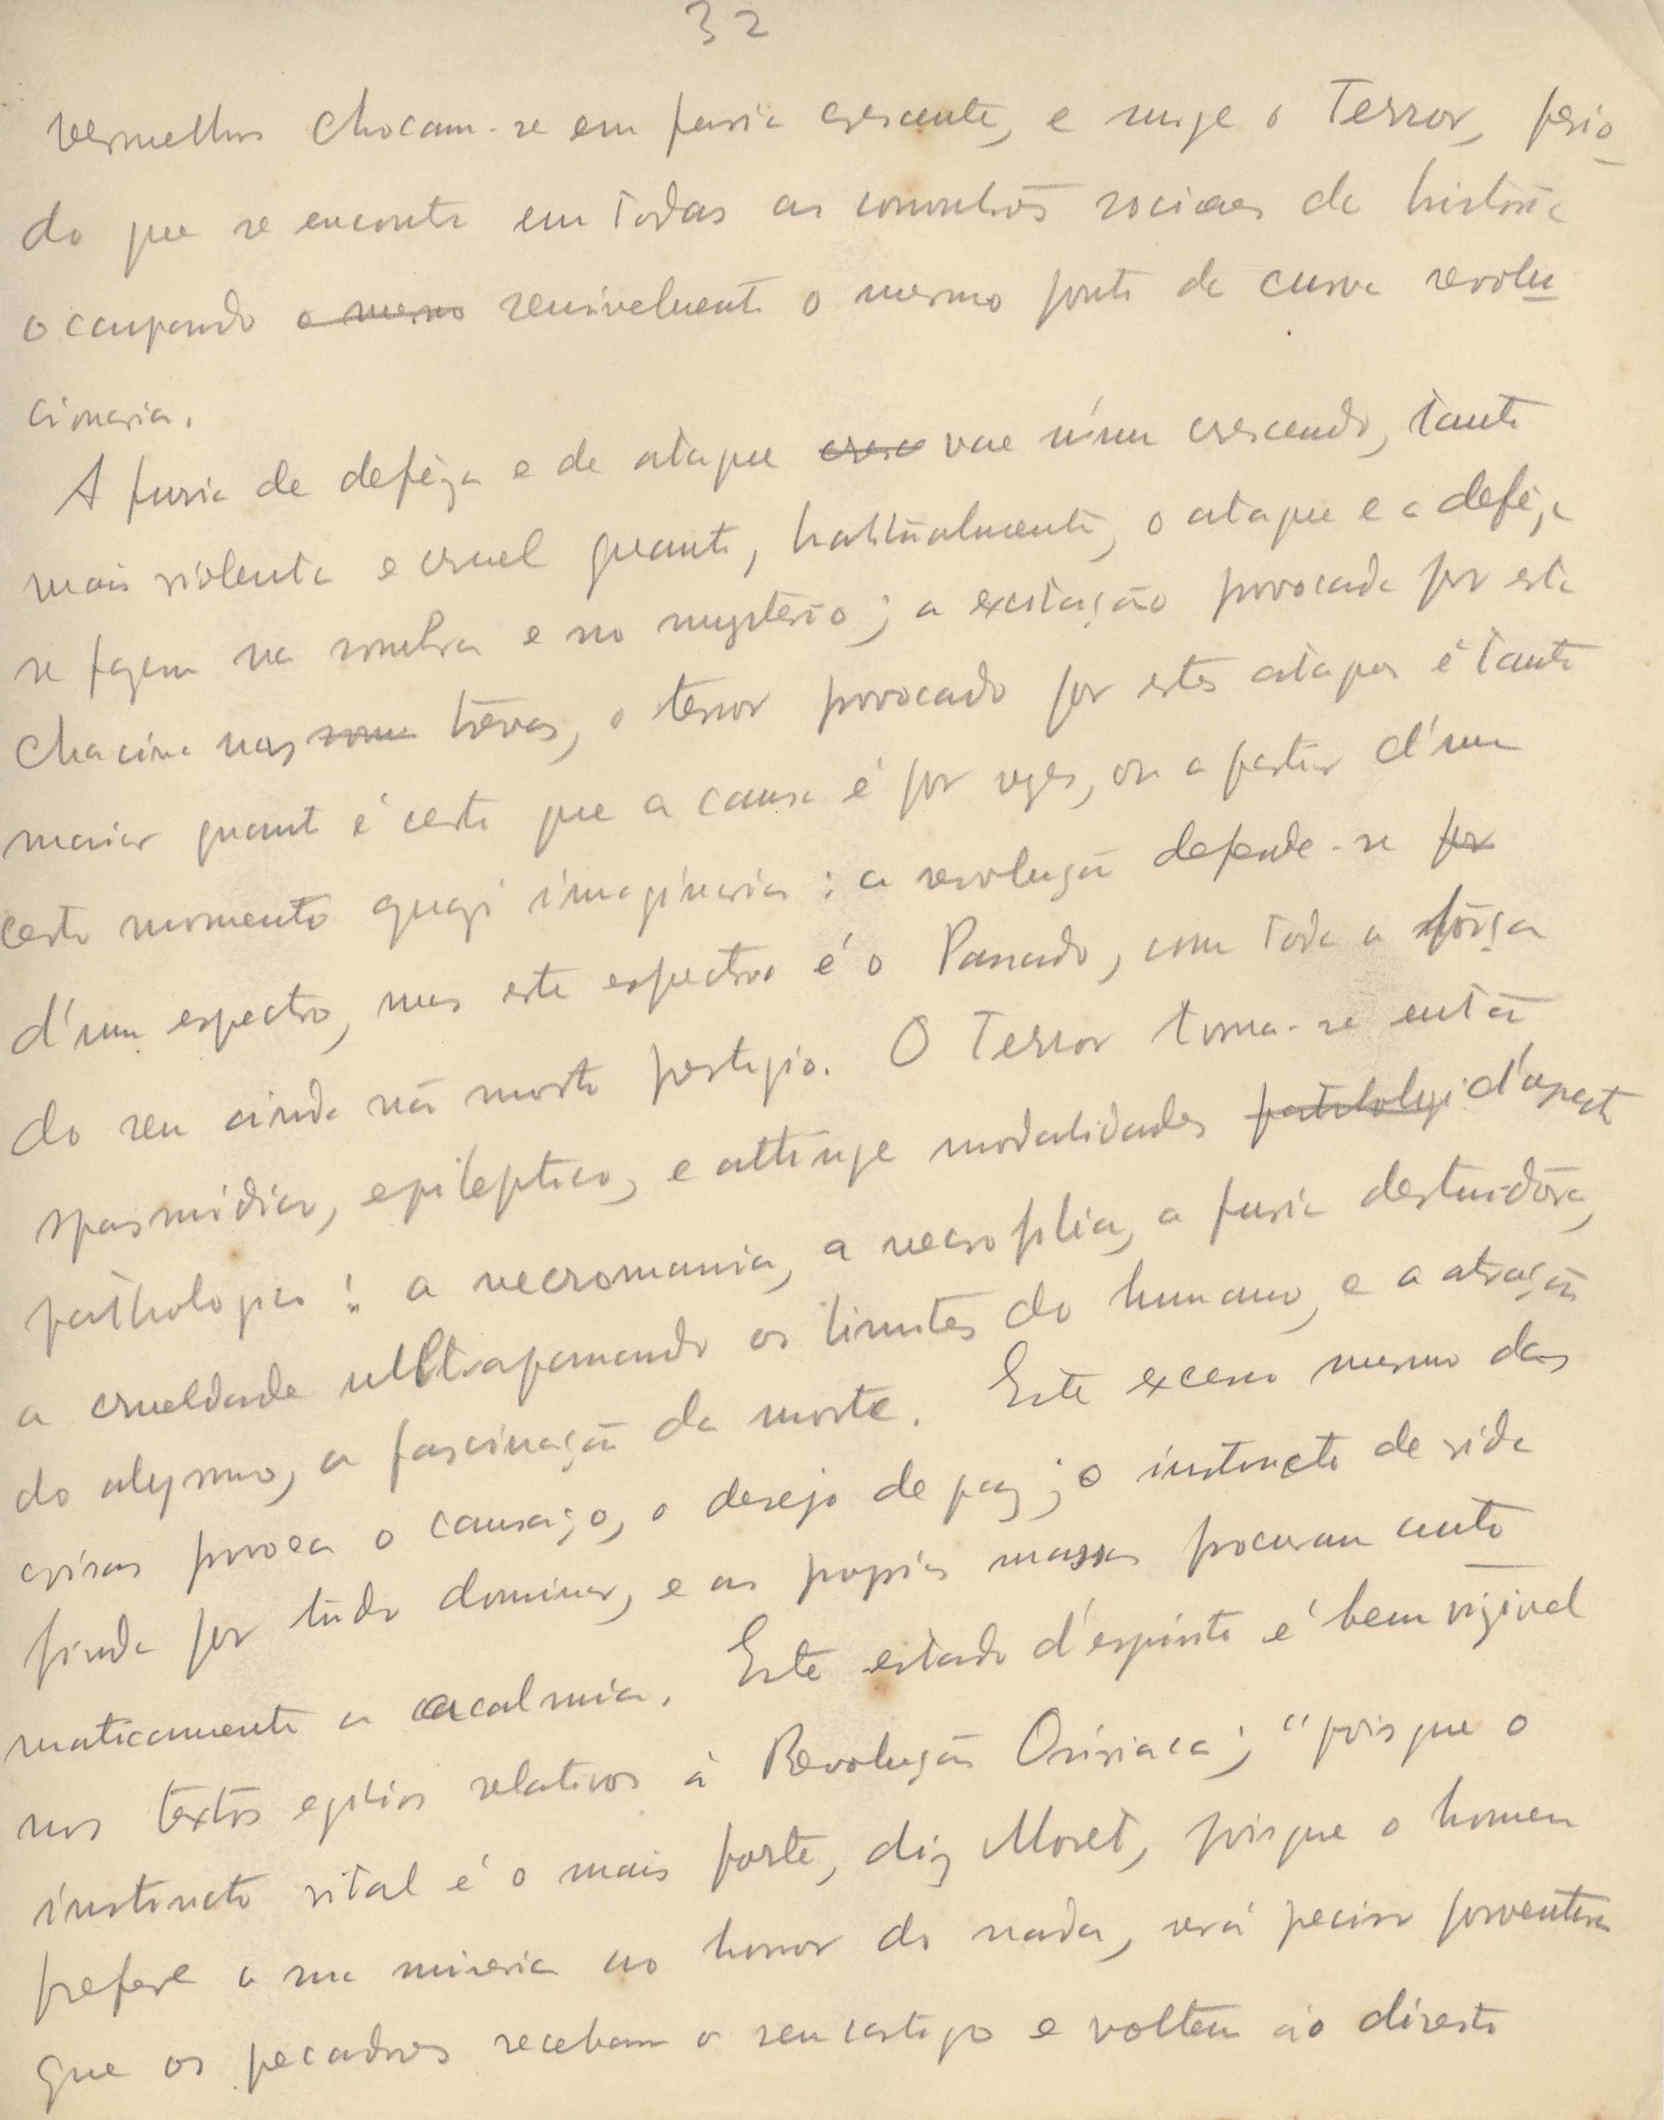 32
vermelhos chocam-se em furia crescente, e surge o Terror, perio
do que se encontra em todas as convulsões sociaes da historia
occupando o mesmo sensivelmente o mesmo ponto da curva revolu
cionaria.
A furia de defêza e de ataque cresce vae n'um crescendo, tanto
mais violenta e cruel quanto, habitualmente, o ataque e a defêza
se fazem na sombra e no mysterio; a excitação provocada por esta
chacina nas som trevas, o terror provocado por estes ataques é tanto
maior quanto é certo que a causa é por vezes, ou a partir d'um
certo momento quazi imaginaria: a revolução defende-se por
d'um espectro, mas este espectro é o Passado, com toda a fôrça
do seu ainda não morto prestigio. O Terror torna-se então
spasmodico, epileptico, e attinge modalidades pathologi d'aspecto
pathologico: a necromania, a necrophilia, a furia destruidôra,
a crueldade ultrapassando os limites do humano, e a atração
do abysmo, a fascinação da morte. Este excesso mesmo das
crises provoca o cansaço, o desejo de paz; o instincto de vida
finda por tudo dominar, e as proprias massas procuram auto
maticamente a acalmia. Este estado d'espirito é bem vizivel
nos textos egipcios relativos á Revolução Osiriaca; "pois que o
instincto vital é o mais forte, diz Moret, pois que o homem
prefere a sua miseria ao horror do nada, será preciso porventura
que os pecadores recebam o seu castigo e voltem ao direito